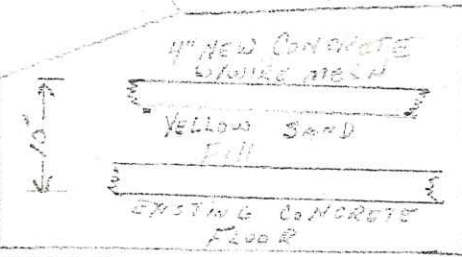 4" NEW CONCRETE
W/WIRE MESH
10"
YELLOW SAND
Fill
EXISTING CONCRETE
FLOOR